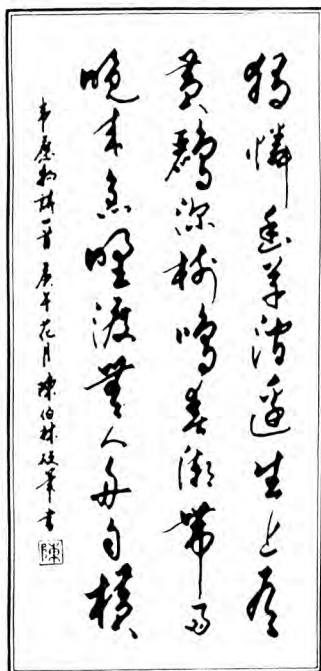 獨憐幽草澗邊生上有
黃鸝深樹鳴春潮帶雨
晚來急野渡無人舟自橫
韋應物詩一首 庚午花月 陳伯林硬筆書
陳